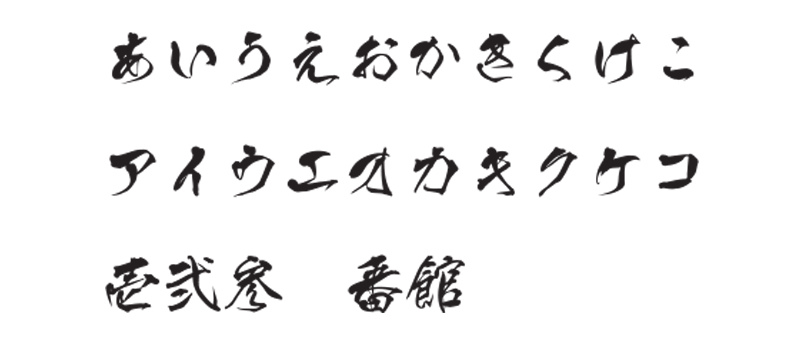 あいうえおかきくけこ
アイウエオカキクケコ
壱弐参　番館